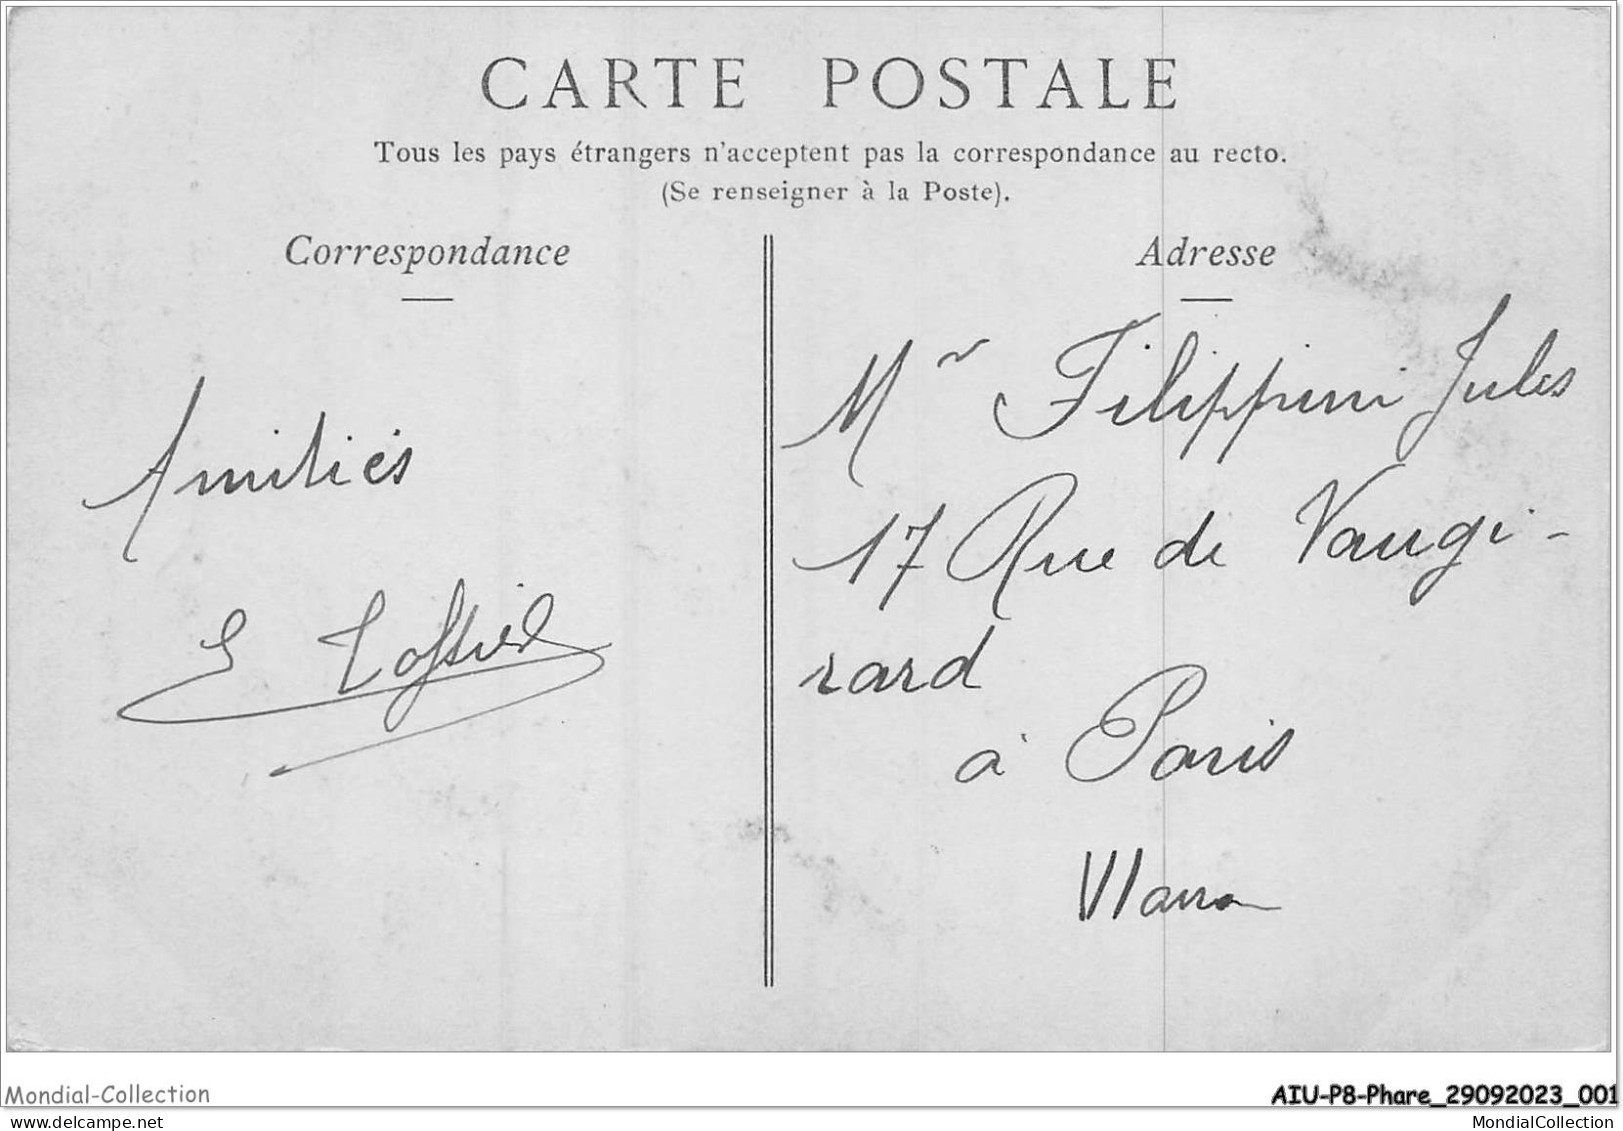 CARTE POSTALE
Tous les pays étrangers n'acceptent pas la correspondance au recto.
(Se renseigner à la Poste).
Correspondance
Adresse
Amitiés
E
Mr Filippini Jules
17 Rue de Vaugi-
rard
à Paris
Mondial-Collection
AIU-P8-Phare_29092023_001
mondial-collection.delcampe.net
MondialCollection